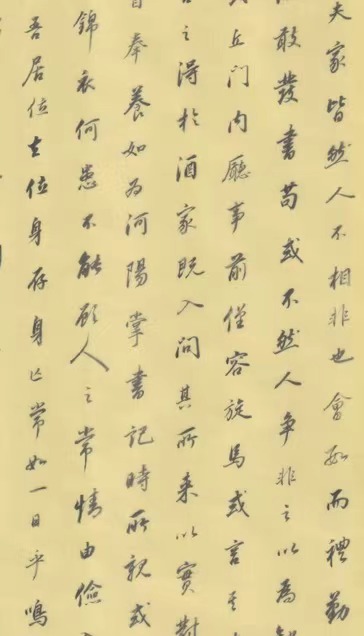 夫家皆然人不相非也會數而禮勤
敢發書苟或不然人爭非之以為
丘門內廳事前僅容旋馬或言其
之得於酒家既入問其所來以實對
奉養如為河陽掌書記時所親或
錦衣何患不能顧人之常情由儉
吾居位去位身存身亡常如一日乎嗚